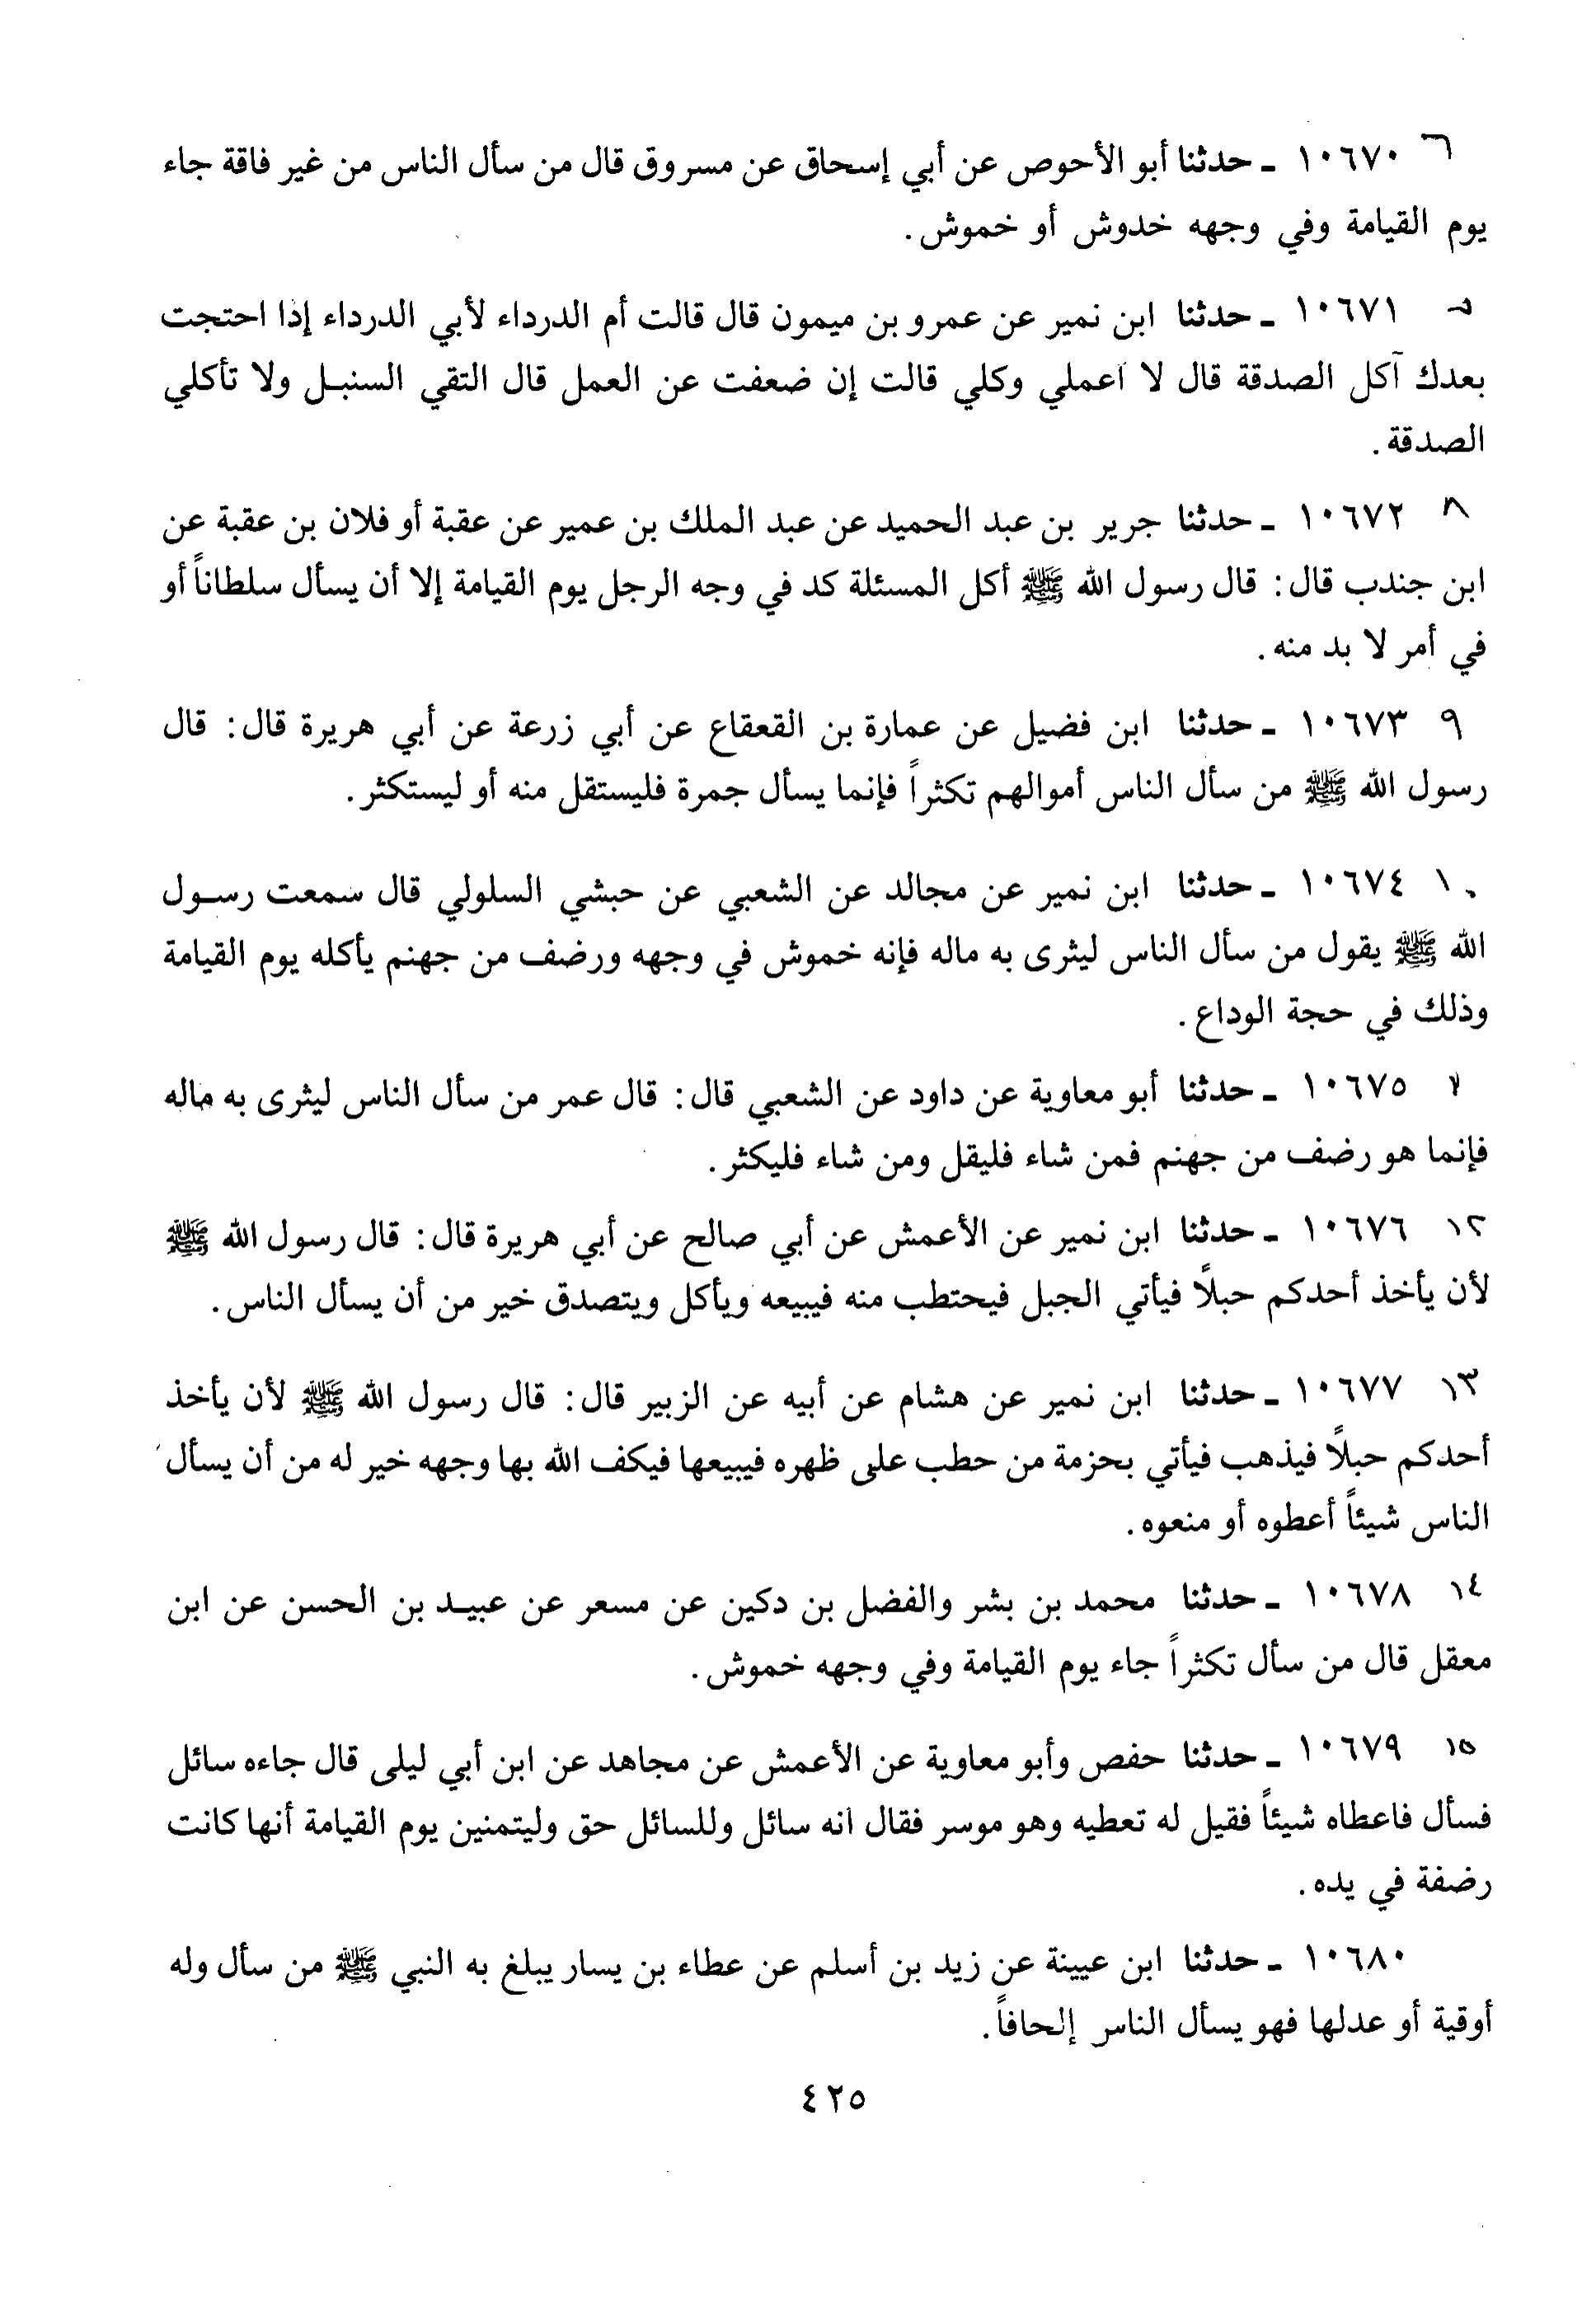 ٦ ١٠٦٧٠ ـ حدثنا أبو الأحوص عن أبي إسحاق عن مسروق قال من سأل الناس من غير فاقة جاء
يوم القيامة وفي وجهه خدوش أو خموش.
١٠٦٧١ ـ حدثنا ابن نمير عن عمرو بن ميمون قال قالت أم الدرداء لأبي الدرداء إذا احتجت
بعدك آكل الصدقة قال لا اعملي وكلي قالت إن ضعفت عن العمل قال التقي السنبل ولا تأكلي
الصدقة.
٨ ١٠٦٧٢ ـ حدثنا جرير بن عبد الحميد عن عبد الملك بن عمير عن عقبة أو فلان بن عقبة عن
ابن جندب قال: قال رسول الله ﷺ أكل المسئلة كد في وجه الرجل يوم القيامة إلا أن يسأل سلطاناً أو
في أمر لا بد منه.
٩ ١٠٦٧٣ ـ حدثنا ابن فضيل عن عمارة بن القعقاع عن أبي زرعة عن أبي هريرة قال: قال
رسول الله ﷺ من سأل الناس أموالهم تكثراً فإنما يسأل جمرة فليستقل منه أو ليستكثر.
١٠ ١٠٦٧٤ ـ حدثنا ابن نمير عن مجالد عن الشعبي عن حبشي السلولي قال سمعت رسول
الله ﷺ يقول من سأل الناس ليثرى به ماله فإنه خموش في وجهه ورضف من جهنم يأكله يوم القيامة
وذلك في حجة الوداع.
١٠٦٧٥ ـ حدثنا أبو معاوية عن داود عن الشعبي قال: قال عمر من سأل الناس ليثرى به ماله
فإنما هو رضف من جهنم فمن شاء فليقل ومن شاء فليكثر.
١٢ ١٠٦٧٦ ـ حدثنا ابن نمير عن الأعمش عن أبي صالح عن أبي هريرة قال: قال رسول الله ﷺ
لأن يأخذ أحدكم حبلاً فيأتي الجبل فيحتطب منه فيبيعه ويأكل ويتصدق خير من أن يسأل الناس.
١٣ ١٠٦٧٧ ـ حدثنا ابن نمير عن هشام عن أبيه عن الزبير قال: قال رسول الله ﷺ لأن يأخذ
أحدكم حبلاً فيذهب فيأتي بحزمة من حطب على ظهره فيبيعها فيكف الله بها وجهه خير له من أن يسأل
الناس شيئاً أعطوه أو منعوه.
١٤ ١٠٦٧٨ ـ حدثنا محمد بن بشر والفضل بن دكين عن مسعر عن عبيد بن الحسن عن ابن
معقل قال من سأل تكثراً جاء يوم القيامة وفي وجهه خموش.
١٥ ١٠٦٧٩ ـ حدثنا حفص وأبو معاوية عن الأعمش عن مجاهد عن ابن أبي ليلى قال جاءه سائل
فسأل فاعطاه شيئاً فقيل له تعطيه وهو موسر فقال انه سائل وللسائل حق وليتمنين يوم القيامة أنها كانت
رضفة في يده.
١٠٦٨٠ ـ حدثنا ابن عيينة عن زيد بن أسلم عن عطاء بن يسار يبلغ به النبي ﷺ من سأل وله
أوقية أو عدلها فهو يسأل الناس إلحافاً.
٤٢٥